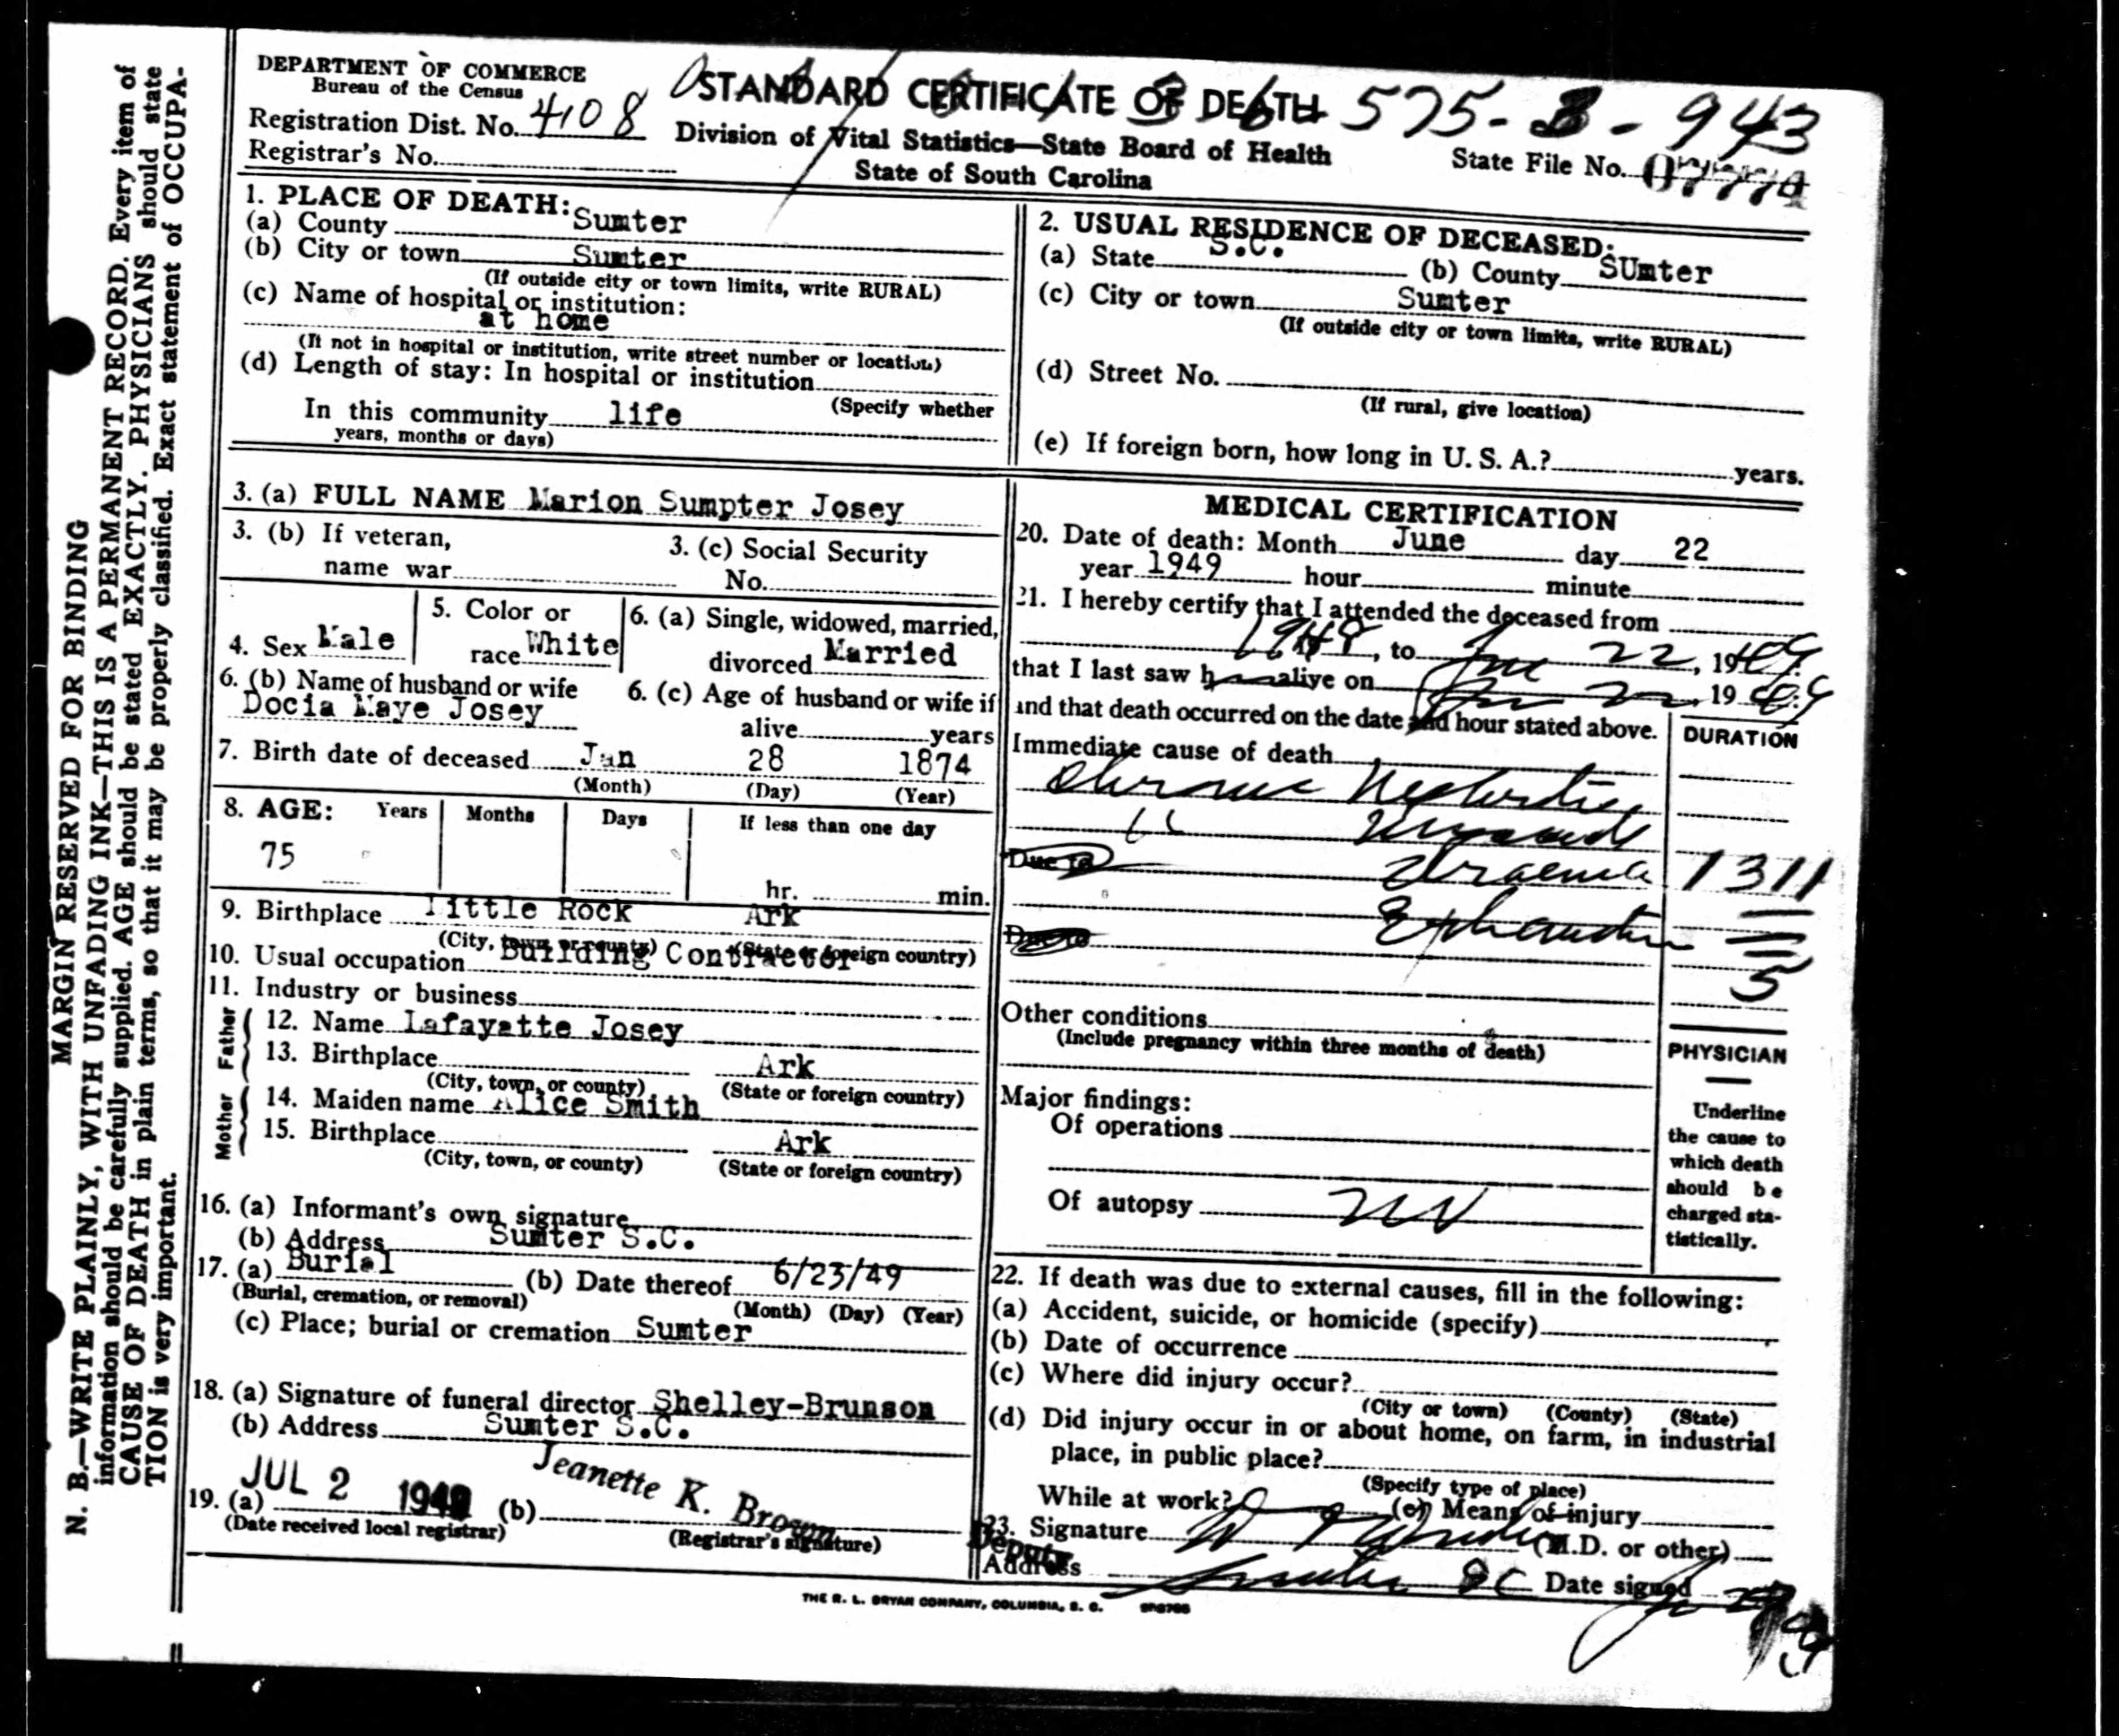 DEPARTMENT OF COMMERCE
Bureau of the Census
Registration Dist. No. 4108
Registrar's No.
STANDARD CERTIFICATE OF DEATH
Division of Vital Statistics—State Board of Health
State of South Carolina
575-B-943
State File No.
1. PLACE OF DEATH:
(a) County Sumter
(b) City or town Sumter
(If outside city or town limits, write RURAL)
(c) Name of hospital or institution:
at home
(If not in hospital or institution, write street number or location)
(d) Length of stay: In hospital or institution
(Specify whether
In this community life
years, months or days)
2. USUAL RESIDENCE OF DECEASED:
(a) State S.C. (b) County SUmter
(c) City or town Sumter
(If outside city or town limits, write RURAL)
(d) Street No.
(If rural, give location)
(e) If foreign born, how long in U. S. A.? years.
3. (a) FULL NAME Marion Sumpter Josey
3. (b) If veteran,
name war
3. (c) Social Security
No.
4. Sex Male
5. Color or
race White
6. (a) Single, widowed, married,
divorced Married
6. (b) Name of husband or wife
Docia Maye Josey
6. (c) Age of husband or wife if
alive years
7. Birth date of deceased Jan 28 1874
(Month) (Day) (Year)
8. AGE: Years Months Days If less than one day
75
hr. min.
9. Birthplace Little Rock Ark
(City, town, or county) (State or foreign country)
10. Usual occupation Building Contractor
11. Industry or business
Father
12. Name Lafayatte Josey
13. Birthplace Ark
(City, town, or county) (State or foreign country)
Mother
14. Maiden name Alice Smith
15. Birthplace Ark
(City, town, or county) (State or foreign country)
16. (a) Informant's own signature
(b) Address Sumter S.C.
17. (a) Burial (b) Date thereof 6/23/49
(Burial, cremation, or removal) (Month) (Day) (Year)
(c) Place; burial or cremation Sumter
18. (a) Signature of funeral director Shelley-Brunson
(b) Address Sumter S.C.
19. (a) JUL 2 1949 (b) Jeanette K. Brown
(Date received local registrar) (Registrar's signature)
MEDICAL CERTIFICATION
20. Date of death: Month June day 22
year 1949 hour minute
21. I hereby certify that I attended the deceased from
1948, to June 22, 1949
that I last saw h alive on June 22, 1949
and that death occurred on the date and hour stated above.
DURATION
Immediate cause of death
Chronic Nephritis
" Myocard
Due to Uraemia 1311
Exhaustion
Due to
5
Other conditions
(Include pregnancy within three months of death)
PHYSICIAN
Underline
the cause to
which death
should be
charged sta-
tistically.
Major findings:
Of operations
Of autopsy no
22. If death was due to external causes, fill in the following:
(a) Accident, suicide, or homicide (specify)
(b) Date of occurrence
(c) Where did injury occur?
(City or town) (County) (State)
(d) Did injury occur in or about home, on farm, in industrial
place, in public place?
(Specify type of place)
While at work? (e) Means of injury
23. Signature (M.D. or other)
Deputy
Address Sumter SC Date signed
THE R. L. BRYAN COMPANY, COLUMBIA, S. C.
MARGIN RESERVED FOR BINDING
N. B.—WRITE PLAINLY, WITH UNFADING INK—THIS IS A PERMANENT RECORD. Every item of
information should be carefully supplied. AGE should be stated EXACTLY. PHYSICIANS should state
CAUSE OF DEATH in plain terms, so that it may be properly classified. Exact statement of OCCUPA-
TION is very important.